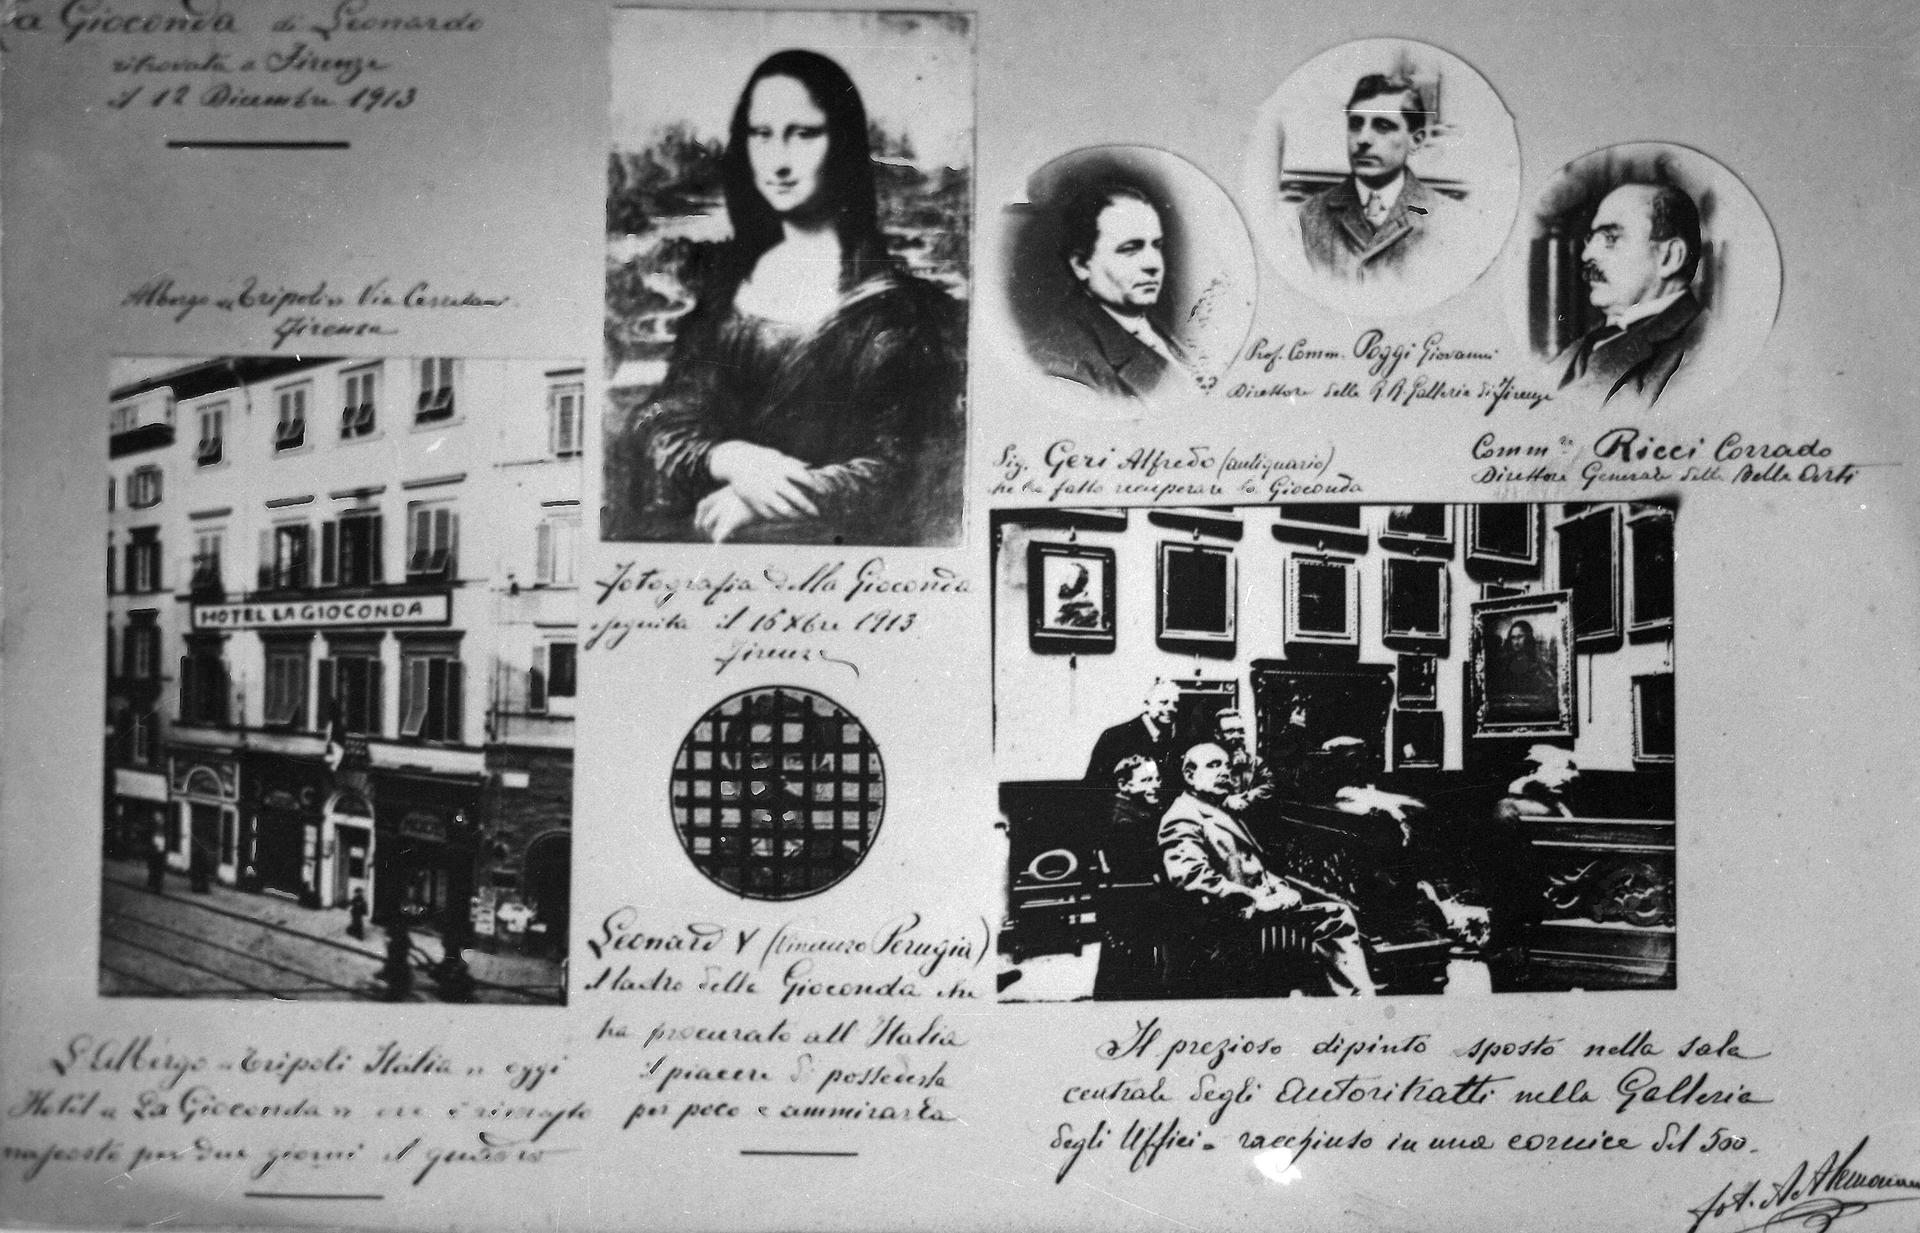 La Gioconda di Leonardo
ritrovata a Firenze
il 12 Dicembre 1913
Albergo "Tripoli" Via Cerretani
Firenze
HOTEL LA GIOCONDA
L'Albergo "Tripoli Italia" oggi
Hotel "La Gioconda" ove è rimasto
nascosto per due giorni il quadro
Fotografia della Gioconda
eseguita il 15 Xbre 1913
Firenze
Leonard V (Vincenzo Perugia)
il ladro della Gioconda che
ha procurato all'Italia
il piacere di possederla
per poco e ammirarla
Prof. Comm. Poggi Giovanni
Direttore delle R.R. Gallerie di Firenze
Sig. Geri Alfredo (antiquario)
che ha fatto recuperare la Gioconda
Comm.re Ricci Corrado
Direttore Generale delle Belle Arti
Il prezioso dipinto sposto nella sala
centrale degli autoritratti nella Galleria
degli Uffici - racchiuso in una cornice del 500.
fot. A.